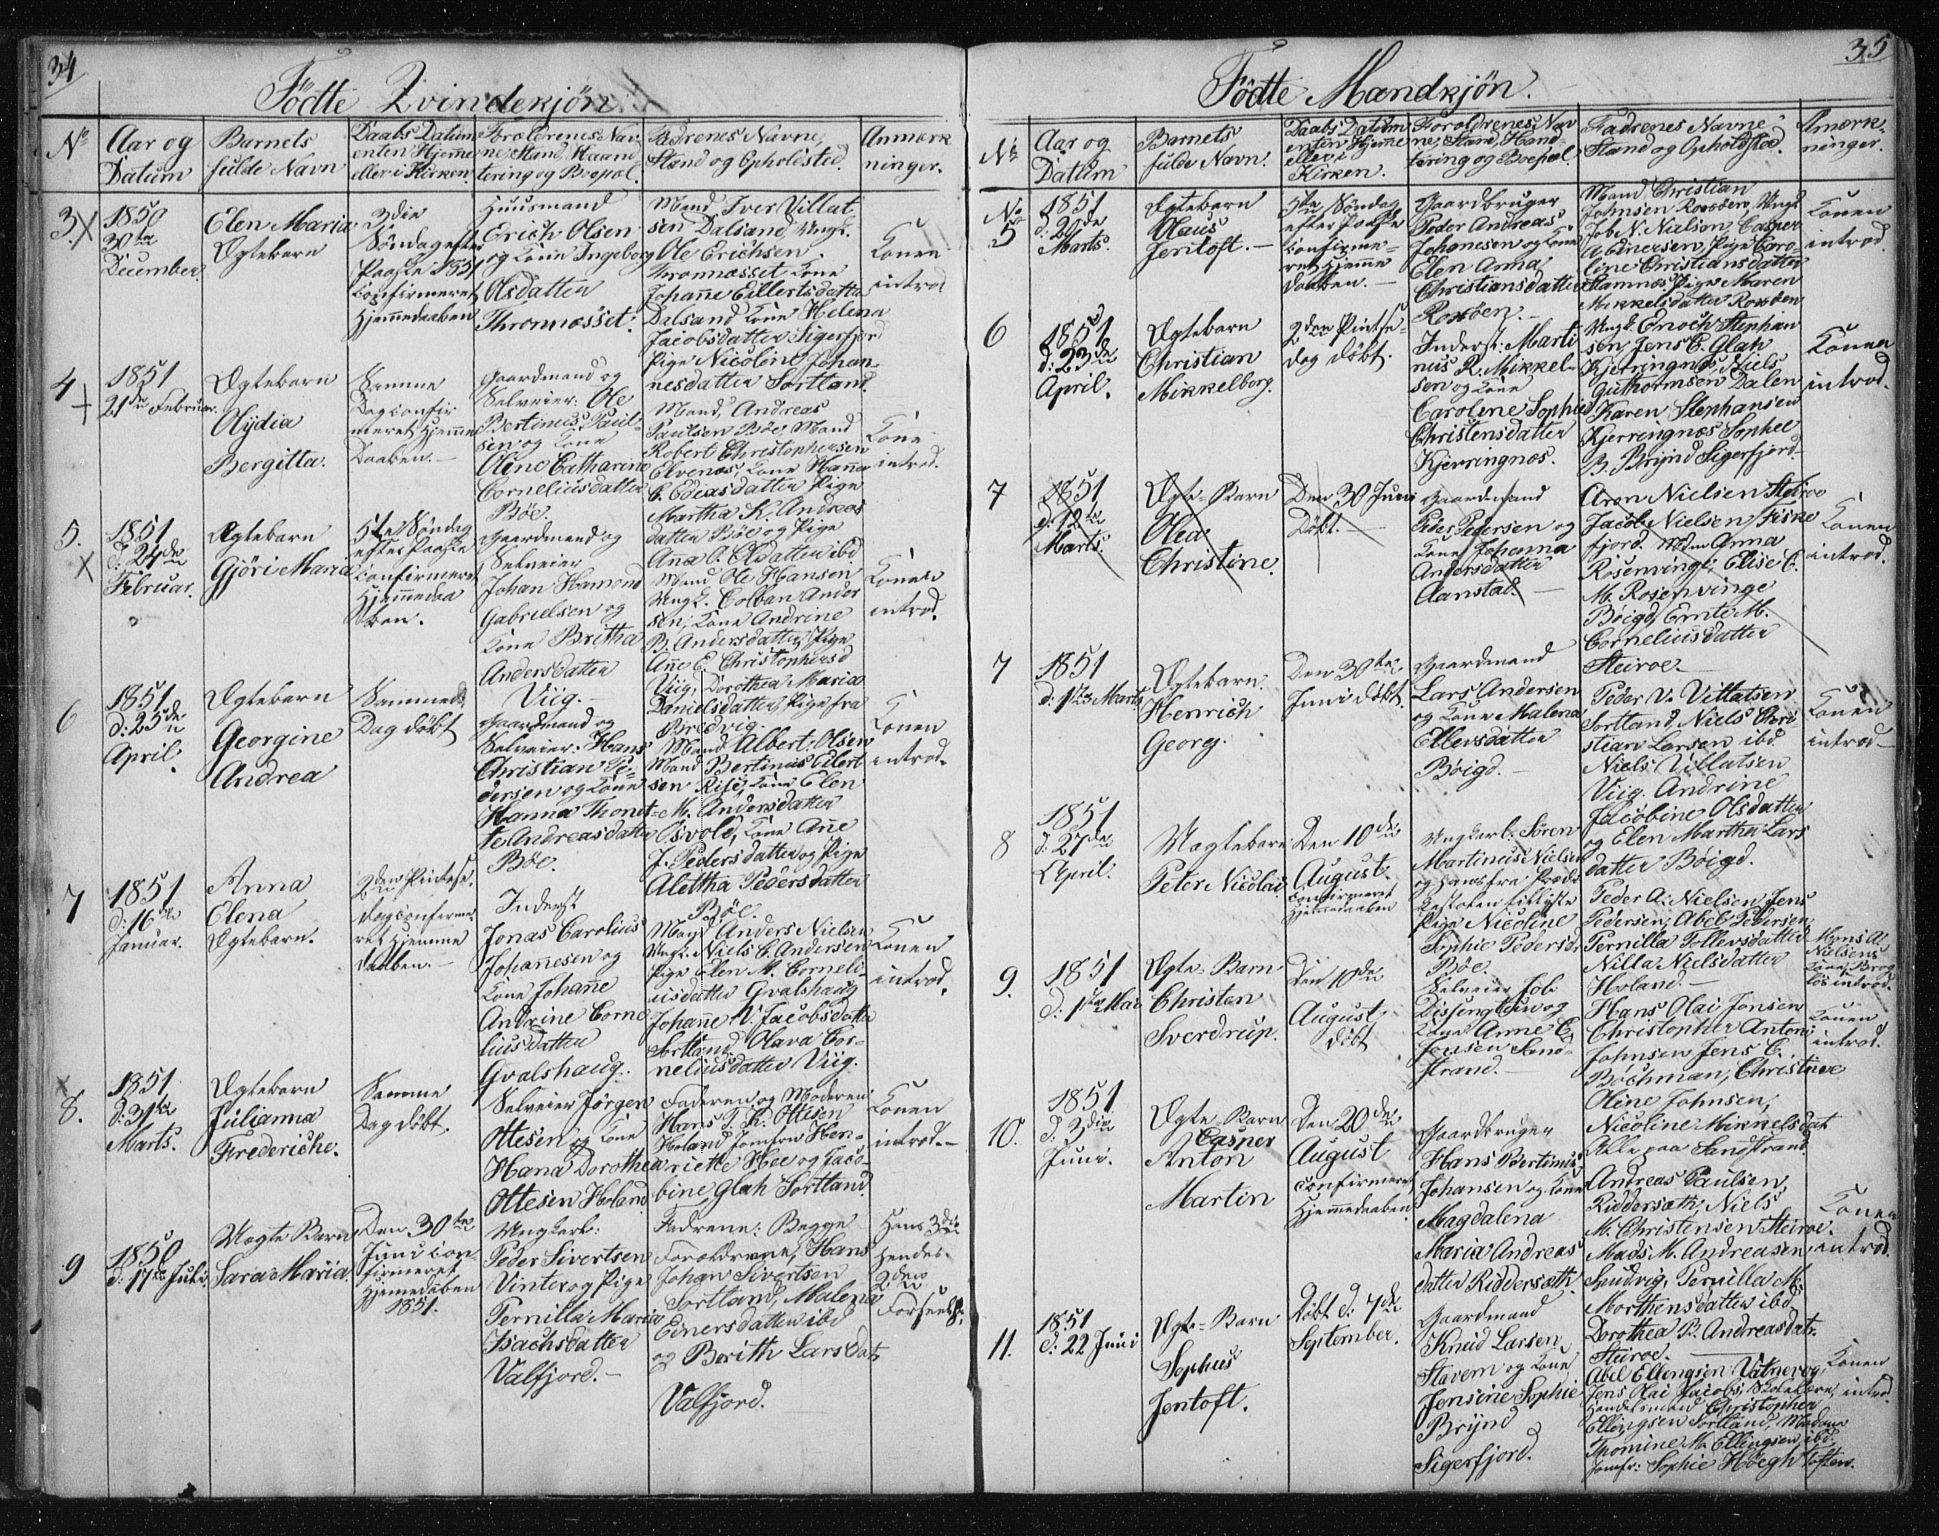 34
Födte Qvindekjön.
No
Aar og
Datum
Barnets
fulde Navn
Daabs Datum
enten Hjemme
eller i Kirken.
Forældrenes Nav-
ne, Stand, Haand
tering og Bopæl.
Fadrenes Navne,
Stand og Opholdsted.
Anmærk
ninger.
3. X
1850
30te
December.
Elen Maria
Ægtebarn
3die
Söndag efter
Paaske 1851
confirmeret
Hjemmedaaben
Huusmand
Erich Olsen
og Kone Ingeborg
Olsdatter
Thronnæsset.
Mand Iver Villat-
sen Dalsand Ungk.
Ole Erichsen
Thronnæsset Kone
Johanne Eillertsdatter
Dalsand Kone Helena
Jacobsdatter Sigerfjord
Pige Nicoline Johan-
nesdatter Sortland.
Konen
introd
4
1851
21de Februar.
Ægtebarn
Olydia
Bergitta.
Samme
Dag confir
meret Hjemme
Daaben.
Gaardmand og
Selveier: Ole
Bertinus Paul-
sen og Kone
Oline Catharine
Corneliusdatter
Böe.
Mand, Andreas
Paulsen Böe, Mand
Robert Christophersen
Elvenæs, Kone Hanna
C. Ediasdatter Pige
Martha K. Andreas
datter Böe og Pige
Anna O. Elsdatter ibd
Kone
introd.
5.
X
1851
d: 24de
Februar.
Ægtebarn
Gjöri Maria
5te Söndag
efter Paaske
confirmeret
Hjemmedaa
ben.
Gaardmand og
Selveier
Johan Hamond
Gabrielsen og
Kone Britha
Andersdatter
Viig.
Mand Ole Hansen
Ungk. Colban Ander
sen, Kone Andrine
B. Andersdatter, Pige
Anne E. Christophersd
Viig, Dorothea Maria
Danielsdatter, Pige fra
Bredvig.
Konen
introd.
6
1851
d: 25de
April.
Ægtebarn
Georgine
Andrea
Samme
Dag döbt
Gaardmand og
Selveier: Hans
Christian Pe-
dersen og Kone
Hanna Thonet-
te Andreasdatter
Böe.
Mand Albert: Olsen
Mand Bertinus Eilert
sen Rise, Kone Elen
M. Andersdatter
Osvold, Kone Anne
J. Pedersdatter og Pige
Alettha Pedersdatter
Böe.
Konen
introd.
7
1851
d: 16de
Januar.
Anna
Elena
Ægtebarn.
2den Pintse-
dag confirme-
ret Hjemme
daaben.
Inderst
Jonas Carolius
Johannesen og
Kone Johane
Andrine Corne
liusdatter
Gvalshaug.
Mand Anders Nielsen
Ungk. Niels C. Andersen
Pige Elen M. Corneli-
usdatter Gvalshaug
Johanne V. Jacobsdatter
Sortland, Olava Cor-
neliusdatter Viig.
Konen
introd.
x
8.
1851
d: 31te
Marts.
Ægtebarn
Julianna
Frederiche.
Samme
Dag döbt.
Selveier Jörgen
Ottesen og Kone
Hana Dorothea
Ottesen Holand.
Faderen og Moderen
Hans T. K. Ottesen
Holand Jomfru Hen-
riette Hee og Jaco-
bine Glah Sortland.
Konen
introd.
9
1850
d: 17de Juli.
Uægte Barn
Sara Maria.
Den 30te
Juni con-
firmeret
Hjemedaaben
1851.
Ungkarl:
Peder Sivertsen
Vinter og Pige
Pernilla Maria
Isachsdatter
Valfjord.
Fadrene: Begge
Forældrene, Hans
Johan Sivertsen
Sortland, Malena
Einersdatter ibd
og Berith Larsdatr
Valfjord.
Hans 3die
Hendes
2den
Forseelse.
35
Födte Mandkjön.
No
Aar og
Datum
Barnets
fulde Navn.
Daabs Datum
enten Hjemme
eller i
Kirken.
Forældrenes Nav
ne, Stand, Haand-
tering og Bopæl
Fadrenes Navne
Stand og Opholdsted.
Amærk-
ninger.
No
5
1851
d: 24de
Marts.
Ægtebarn
Olaus
Jentoft.
5te Söndag
efter Paaske
confirme-
ret Hjemme
daaben.
Gaardbruger
Peder Andreas
Johannesen og Kone
Elen Anna
Christiansdatter
Roksöen.
Mand Christian
Johnsen Roksöen, Ungk.
Job N. Nielsen, Casper
Abelnersen, Pige Caro-
line Christiansdatter
Stamnæs, Pige Maren
Mikkelsdatter Roksöen
Konen
introd.
6
1851
d: 23de
April.
Ægtebarn
Christian
Mikkelborg.
2den Pintse-
dag döbt.
Inderst: Marti
nus R. Mikkel-
sen og Kone
Caroline Sophie
Christensdatter
Kjerringnæs.
Ungk. Enoch Stephan
sen, Jens C. Glah
Kjerringnæs, Niels
Guthormsen Dalen
Karen Stephansen
Kjerringnæs Sophie
B. Brÿnd Sigerfjord.
Konen
introd.
7
1851
d: 12te
Marts.
Ægte-Barn
Olea
Christine.
Den 30 Juni
Döbt.
Gaardmand
Peder Pedersen og
Kone Johanna
Andersdatter
Aanstad.
Aron Nielsen Steiroe
Jacob Nielsen, Fiske
fjord. Mdm Anna
Rosenvinge, Elise C.
M. Rosenvinge
Böigd, Emte M.
Corneliusdatter
Steiroe.
Konen
introd.
7
1851
d: 1te Marts
Ægtebarn.
Henrich
Georg.
Den 30te
Juni döbt.
Gaardmand
Lars Andersen
og Kone Malena
Ellevsdatter
Böigd.
Peder V. Villatsen
Sortland, Niels Chri-
stian Larsen ibd
Niels Villatsen
Viig. Andrine
Jacobine Olsdatter
og Elen Martha Lars
datter Böigd.
Konen
introd.
8
1851
d: 27de
April.
Uægtebarn
Peter Nicolai
Den 10de
August.
confirmeret
Hjemmedaaben
Ungkarl: Sören
Martinus Nielsen
og hans fra Præde-
kestolen tillyste
Pige Nicoline
Sophie Pedersd.
Böe.
Peder A. Nielsen, Jens
Pedersen, Abel Pedersen,
Pernilla Tollevsdatter
Nilla Nielsdatter
Holand.
Mons A.
Nielsens
Kone Brog
lös introd.
9.
1851
d: 1te Mai
Ægte-Barn
Christen
Sverdrup.
Den 10de
August
döbt
Selveier Job
Dissengteen og
Kone Anne E.
Jensen Sand-
strand.
Hans Olai Jonsen
Christopher Antoni
Johnsen, Jens C.
Böchman, Christine
Oline Johnsen,
Nicoline Mikkelsdat
Alle paa Sandstrand
Konen
introd.
10.
1851
d. 3die
Juni.
Ægte Barn
Casper
Anton
Martin
Den 20de
August
confirmeret
Hjemmedaaben
Gaardbruger
Hans Bertinus
Johansen og Kone
Magdalena
Maria Andreas
datter Riddersæth.
Andreas Paulsen,
Riddersæth, Niels
M. Christensen Steiroe.
Mads M. Andreasen
Sandvig, Pernilla M.
Morthensdatter ibd
Dorothea B. Andreasdatr
Steiroe.
Konen
introd.
11.
1851
d: 22 Juni
Ægte-Barn
Sophus
Jentoft.
Döbt d: 7de
September.
Gaardmand
Knud Larsen
Stavem og Kone
Jensine Sophie
Brÿnd
Sigerfjord.
Abel Ellingsen Vatnevog,
Jens Olai Jacobs, Skolelærer,
Handelsmand Christopher
Ellingsen Sortland, Madame
Thomine M. Ellingsen ibd.
Jomfr: Sophie Höegh toften.
Konen
introd.